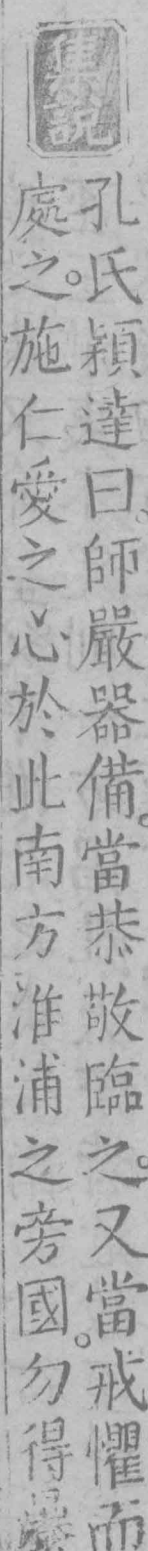 集說
孔氏穎達曰、師嚴器備。當恭敬臨之。又當戒懼而
處之。施仁愛之心於此南方淮浦之旁國。勿得暴